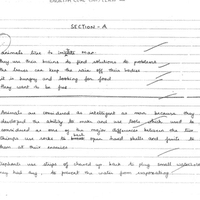 SECTION - A
Animals like to imitate man.
They use their brains to find solutions to problems
The leaves can keep the rain off their bodies
It is hungry and looking for food
They want to be fed
Animals are considered as intelligent as man because they
developed the ability to make and use tools which used to
considered as one of the major differences between the two.
Chimps use rocks to break open hard shells and fruits to
them at their
Elephants use strips of chewed up bark to plug small
they had dug. to prevent the water from evaporating.